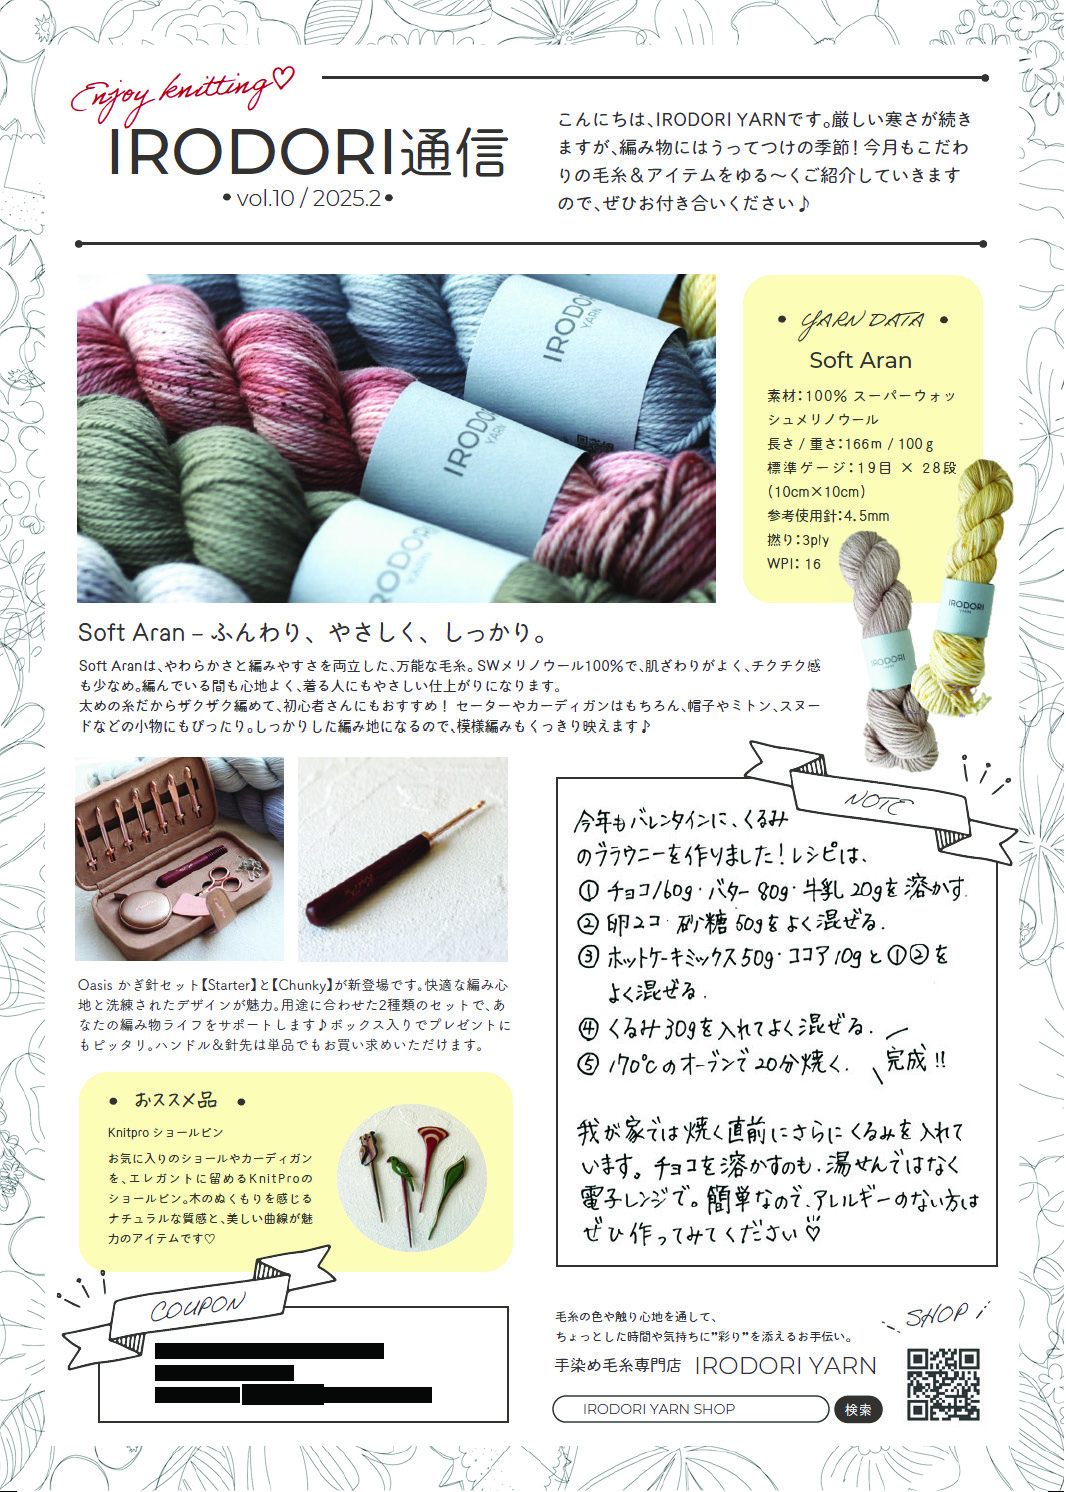 Enjoy knitting♡
IRODORI通信
•vol.10 / 2025.2•
こんにちは、IRODORI YARNです。厳しい寒さが続き
ますが、編み物にはうってつけの季節！今月もこだわ
りの毛糸＆アイテムをゆる〜くご紹介していきます
ので、ぜひお付き合いください♪
IRODO
YARN
IRODO
YARN
IRODOR
YARN
• YARN DATA •
Soft Aran
素材：100％ スーパーウォッ
シュメリノウール
長さ / 重さ：166m / 100g
標準ゲージ：19目 × 28段
（10cm×10cm）
参考使用針：4.5mm
撚り：3ply
WPI： 16
IRODORI
YARN
IRODORI
YARN
Soft Aran – ふんわり、やさしく、しっかり。
Soft Aranは、やわらかさと編みやすさを両立した、万能な毛糸。SWメリノウール100％で、肌ざわりがよく、チクチク感
も少なめ。編んでいる間も心地よく、着る人にもやさしい仕上がりになります。
太めの糸だからザクザク編めて、初心者さんにもおすすめ！ セーターやカーディガンはもちろん、帽子やミトン、スヌー
ドなどの小物にもぴったり。しっかりした編み地になるので、模様編みもくっきり映えます♪
Oasis かぎ針セット【Starter】と【Chunky】が新登場です。快適な編み心
地と洗練されたデザインが魅力。用途に合わせた2種類のセットで、あ
なたの編み物ライフをサポートします♪ボックス入りでプレゼントに
もピッタリ。ハンドル＆針先は単品でもお買い求めいただけます。
• おススメ品 •
Knitpro ショールピン
お気に入りのショールやカーディガン
を、エレガントに留めるKnitProの
ショールピン。木のぬくもりを感じる
ナチュラルな質感と、美しい曲線が魅
力のアイテムです♡
COUPON
NOTE
今年もバレンタインに、くるみ
のブラウニーを作りました！レシピは、
① チョコ160g・バター 80g・牛乳 20gを溶かす.
② 卵2コ・砂糖 50gをよく混ぜる.
③ ホットケーキミックス50g・ココア10gと①②を
よく混ぜる.
④ くるみ30gを入れてよく混ぜる.
⑤ 170℃のオーブンで20分焼く. 完成!!
我が家では焼く直前にさらにくるみを入れて
います。チョコを溶かすのも、湯せんではなく
電子レンジで。簡単なので、アレルギーのない方は
ぜひ作ってみてください♡
毛糸の色や触り心地を通して、
ちょっとした時間や気持ちに”彩り”を添えるお手伝い。
手染め毛糸専門店 IRODORI YARN
SHOP
IRODORI YARN SHOP 検索